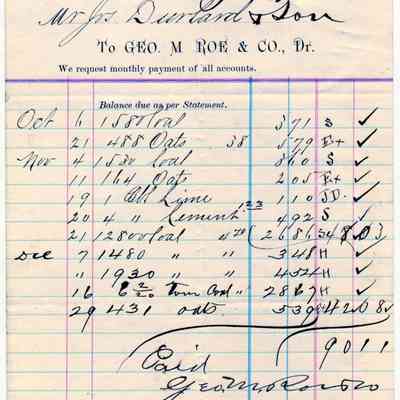 Mr Jrs Durland & Son
To GEO. M ROE & CO., Dr.
We request monthly payment of all accounts.
Balance due as per Statement.
Oct 6 1580 Coal 371 S ✓
21 488 Oats 38 579 Ex ✓
Nov 4 1530 Coal 860 S ✓
11 164 Oats 205 Ex ✓
19 1 Lime 110 JD. ✓
20 4 " Cement 123 492 S ✓
21 12800 Coal 4 70 2686 34 8 0 3
Dec 7 1480 " " 348 H ✓
" 1930 " " 454 H ✓
16 6 2/20 Tons Coal " 2867 H ✓
29 431 oats 539 42 0 8 ✓
Paid 9 0 1 1
Geo M Roe & Co